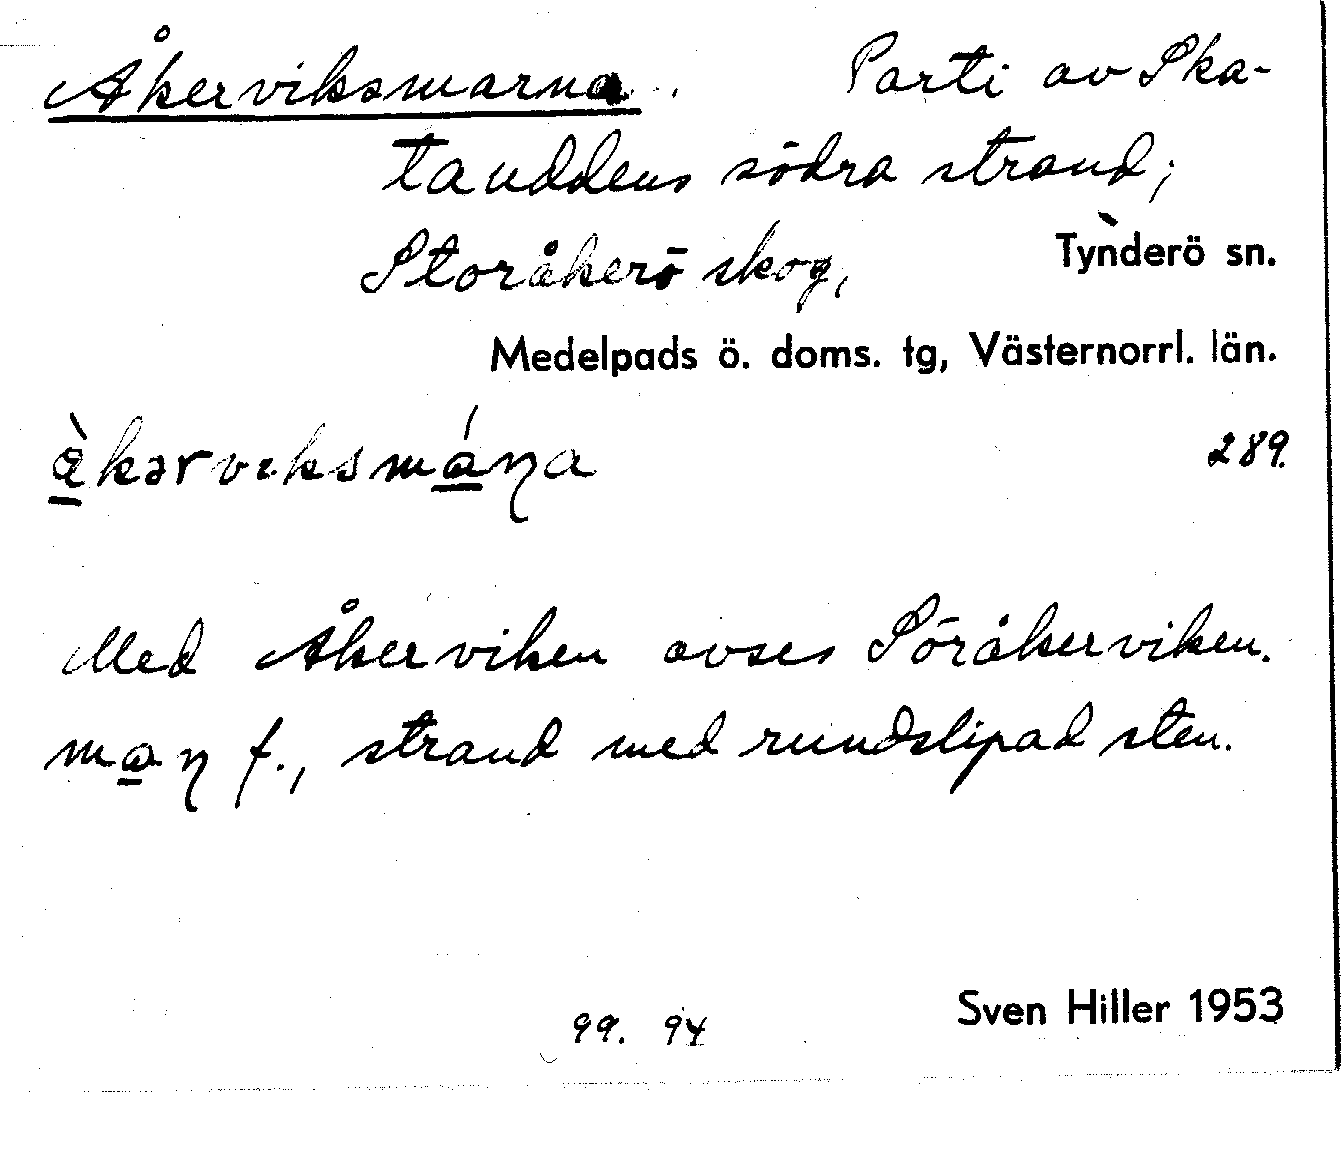 Åkerviksmarna. Parti av Ska-
tauddens södra strand;
Storåkerö skog, Tynderö sn.
Medelpads ö. doms. tg, Västernorrl. län.
à̱kərviksmá̱ɳa 289.
Med Åkerviken avses Söråkerviken.
ma̱ɳ f., strand med rundslipad sten.
Sven Hiller 1953
99. 94